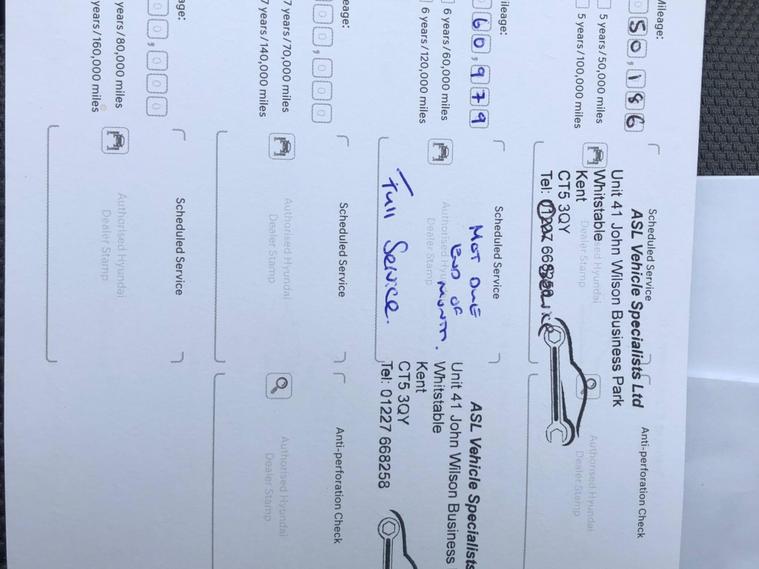 Mileage:
50,186
5 years/50,000 miles
5 years/100,000 miles
Scheduled Service
ASL Vehicle Specialists Ltd
Unit 41 John Wilson Business Park
Whitstable
Kent
CT5 3QY
Tel: 01227 668258
Authorised Hyundai
Dealer Stamp
Anti-perforation Check
Authorised Hyundai
Dealer Stamp
Mileage:
60,979
6 years/60,000 miles
6 years/120,000 miles
Scheduled Service
MOT DUE
END OF
MONTH.
Full Service.
Authorised Hyundai
Dealer Stamp
ASL Vehicle Specialists
Unit 41 John Wilson Business
Whitstable
Kent
CT5 3QY
Tel: 01227 668258
eage:
00,000
7 years/70,000 miles
7 years/140,000 miles
Scheduled Service
Authorised Hyundai
Dealer Stamp
Anti-perforation Check
Authorised Hyundai
Dealer Stamp
age:
0,000
years/80,000 miles
years/160,000 miles
Scheduled Service
Authorised Hyundai
Dealer Stamp